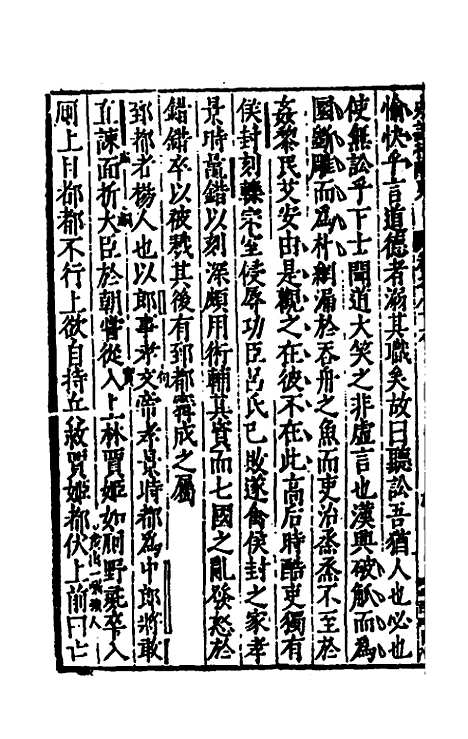 愉快乎言道德者溺其職矣故曰聽訟吾猶人也必也
使無訟乎下士聞道大笑之非虛言也漢興破觚而為
圜斲雕而為朴網漏於吞舟之魚而吏治烝烝不至於
姦黎民艾安由是觀之在彼不在此高后時酷吏獨有
侯封刻轢宗室侵辱功臣呂氏已敗遂禽侯封之家孝
景時鼂錯以刻深頗用術輔其資而七國之亂發怒於
錯錯卒以被戮其後有郅都甯成之屬
郅都者楊人也以郎事孝文帝孝景時都為中郎將敢
直諫面折大臣於朝嘗從入上林賈姬如厠野彘卒入
厠上目都都不行上欲自持兵救賈姬都伏上前曰亡